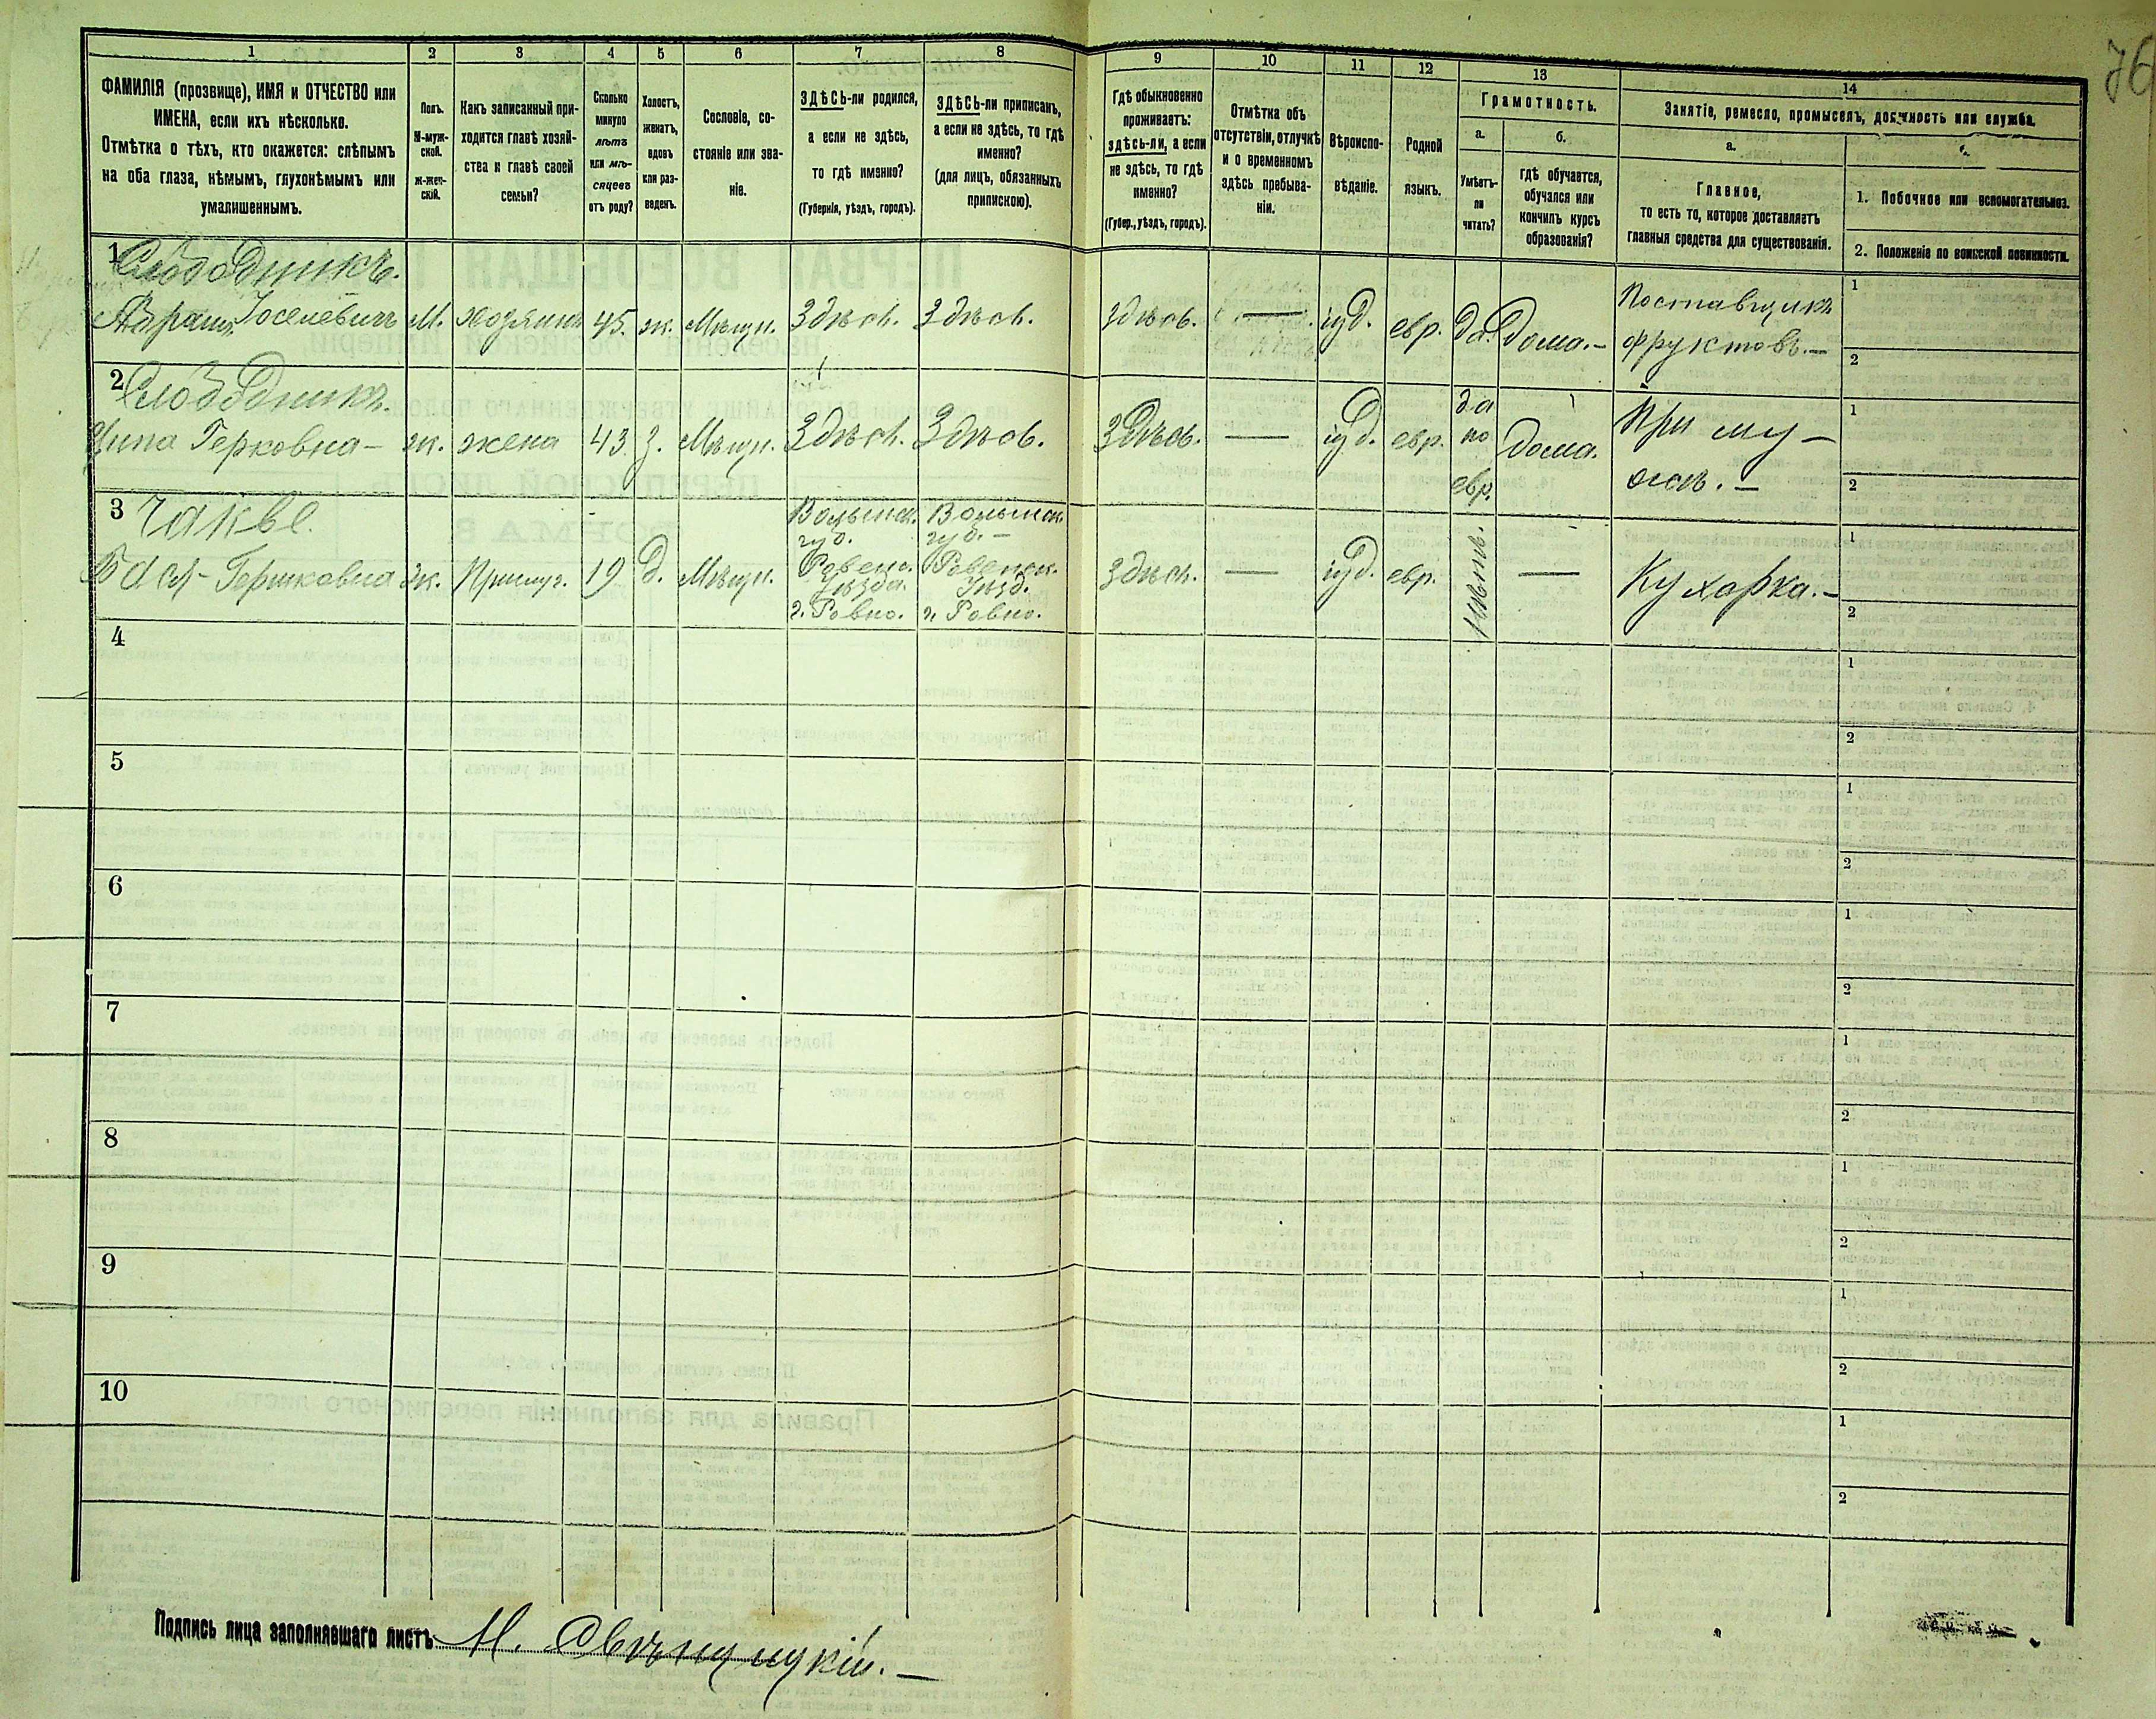 76
1 2 3 4 5 6 7 8 9 10 11 12 13 14
ФАМИЛІЯ (прозвище), ИМЯ и ОТЧЕСТВО или
ИМЕНА, если ихъ нѣсколько.
Отмѣтка о тѣхъ, кто окажется: слѣпымъ
на оба глаза, нѣмымъ, глухонѣмымъ или
умалишеннымъ.
Полъ.
М-муж-
ской.
ж-жен-
скій.
Какъ записанный при-
ходится главѣ хозяй-
ства и главѣ своей
семьи?
Сколько
минуло
лѣтъ
или мѣ-
сяцевъ
отъ роду?
Холостъ,
женатъ,
вдовъ
или раз-
веденъ.
Сословіе, со-
стояніе или зва-
ніе.
ЗДѢСЬ-ли родился,
а если не здѣсь,
то гдѣ именно?
(Губернія, уѣздъ, городъ).
ЗДѢСЬ-ли приписанъ,
а если не здѣсь, то гдѣ
именно?
(для лицъ, обязанныхъ
припискою).
Гдѣ обыкновенно
проживаетъ:
здѣсь-ли, а если
не здѣсь, то гдѣ
именно?
(Губер., уѣздъ, городъ).
Отмѣтка объ
отсутствіи, отлучкѣ
и о временномъ
здѣсь пребыва-
ніи.
Вѣроиспо-
вѣданіе.
Родной
языкъ.
Грамотность.
а.
Умѣетъ-
ли
читать?
б.
гдѣ обучается,
обучался или
кончилъ курсъ
образованія?
Занятіе, ремесло, промыселъ, должность или служба.
а.
Главное,
то есть то, которое доставляетъ
главныя средства для существованія.
1. Побочное или вспомогательное.
2. Положеніе по воинской повинности.
1 Слободникъ.
Абрамъ Іоселевичъ М. хозяинъ 45. ж. Мѣщн. Здѣсь. Здѣсь. Здѣсь. — іуд. евр. да. Дома.— Поставщикъ
фруктовъ.—
1
2
2 Слободникъ.
Герковна— ж. жена 43. З. Мѣщн. Здѣсь. Здѣсь. Здѣсь. — іуд. евр. да
по
евр. Дома. При му—
жѣ.—
1
2
3
Бася Гершковна ж. Прислуг. 19 д. Мѣщн. Волынск.
губ.
Ровенс.
Уѣзда.
г. Ровно. Волынск.
губ.—
Ровенск.
Уѣзд.
г. Ровно. Здѣсь. — іуд. евр. нѣтъ. — Кухарка.—
1
2
4
1
2
5
1
2
6
1
2
7
1
2
8
1
2
9
1
2
10
1
2
Подпись лица заполнявшаго листъ